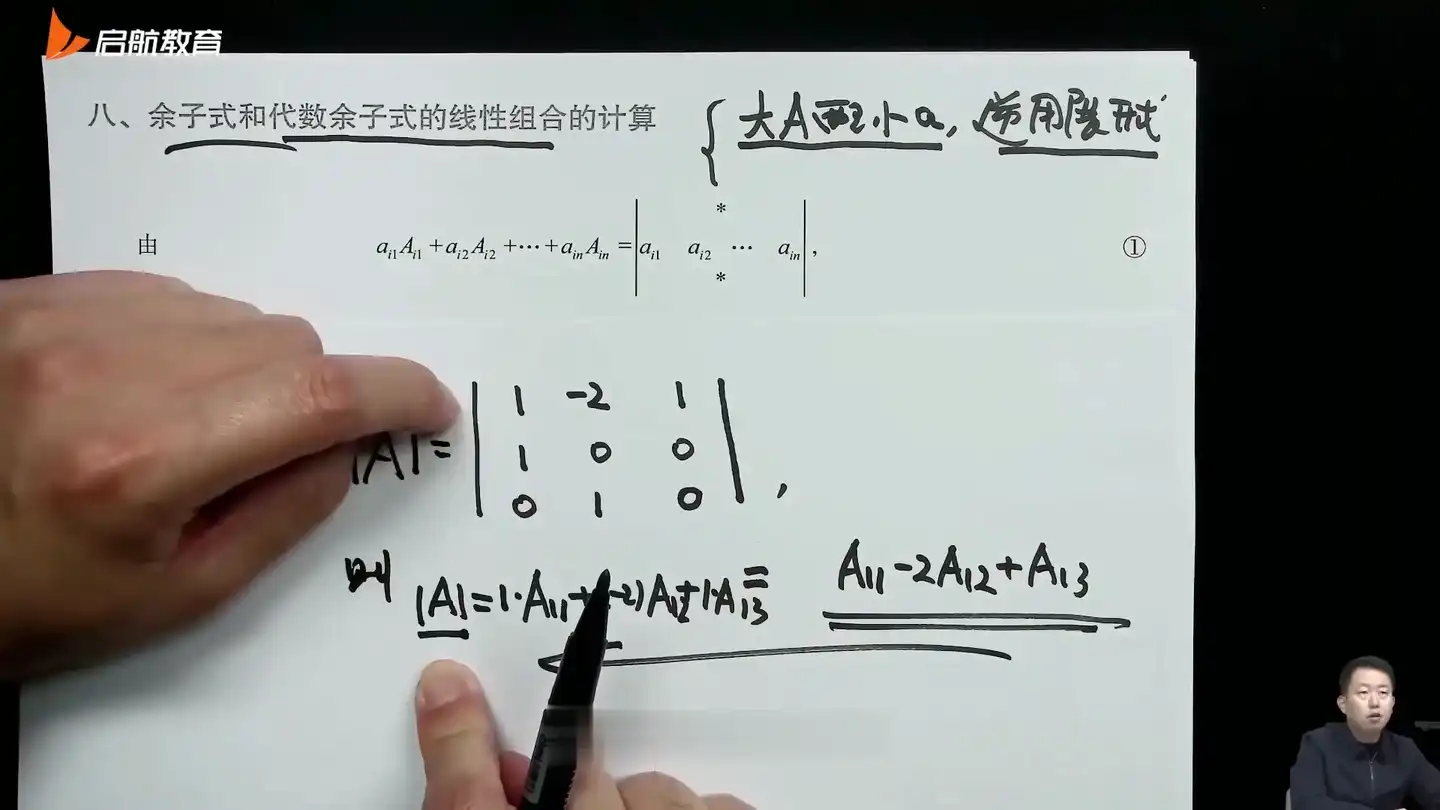 启航教育
八、余子式和代数余子式的线性组合的计算
{ 大A配小a, 逆用展开式
由 a_{i1}A_{i1}+a_{i2}A_{i2}+⋯+a_{in}A_{in}=| * ; a_{i1} a_{i2} ⋯ a_{in} ; * |, ①
|A|=
1 -2 1
1 0 0
0 1 0 ,
则 |A|=1·A₁₁+(-2)A₁₂+1·A₁₃= A₁₁-2A₁₂+A₁₃